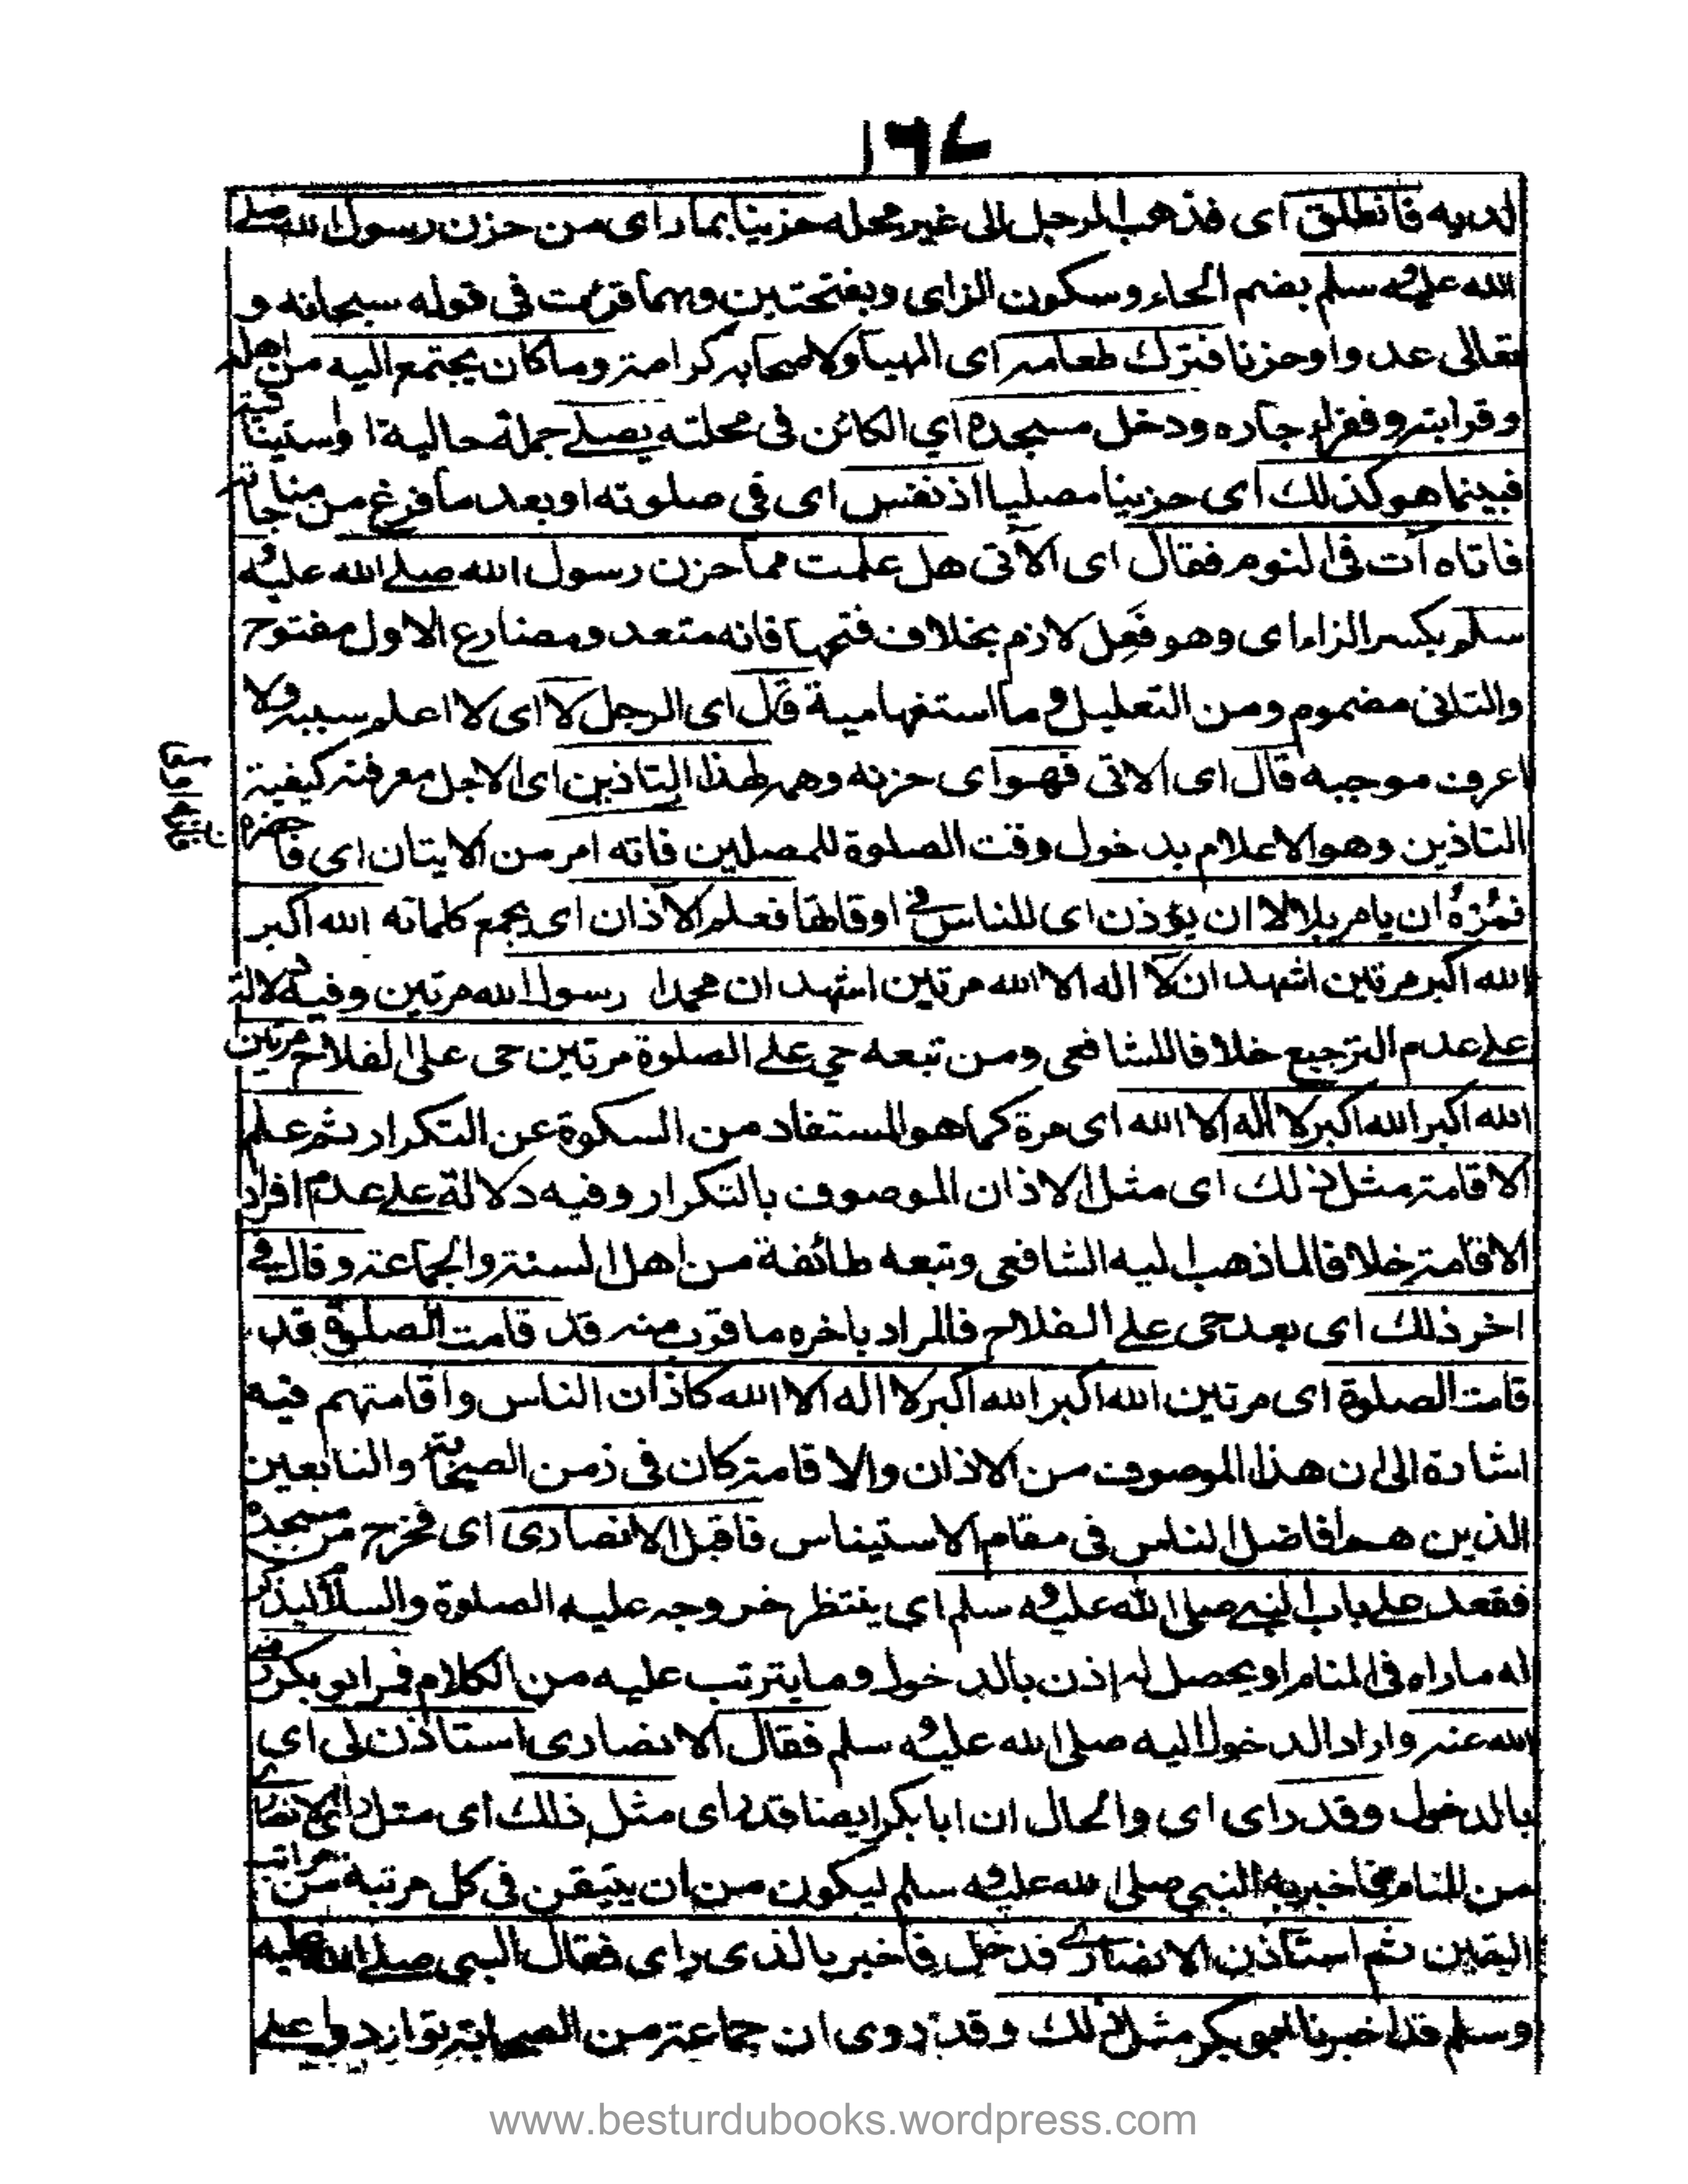 ١٦٧
لديه فانطلق اى فذهب الرجل الى غير محله حزينا بما راى من حزن رسول الله صلے
الله عليه وسلم بضم الحاء وسكون الزاى وبفتحتين وبهما قرئت فى قوله سبحانه و
تعالى عدوا وحزنا فترك طعامه اى المهيأ ولاصحابه كرامة وما كان يجتمع اليه من اهله
وقرابته وفقراء جاره ودخل مسجده اي الكائن فى محلته يصلے جملة حالية او استينافية
فبينما هو كذلك اى حزينا مصليا اذ نعس اى فى صلوته او بعد ما فرغ من مناجاته
فاتاه آت فى النوم فقال اى الآتى هل علمت مما حزن رسول الله صلے الله عليه و
سلم بكسر الزاء اى وهو فَعِل لازم بخلاف فتحها فانه متعد ومضارع الاول مفتوح
والثانى مضموم ومن التعليل وما استفهامية قال اى الرجل لا اى لا اعلم سببه ولا
اعرف موجبه قال اى الاتى فهو اى حزنه وهمه لهذا التاذين اى لاجل معرفة كيفية
التاذين وهو الاعلام بدخول وقت الصلوة للمصلين فاته امر من الاتيان اى فاحضره
فمُرْهُ ان يامر بلالا ان يؤذن اى للناس فے اوقاتها فعلمه الاذان اى بجمع كلماته الله اكبر
الله اكبر مرتين اشهد ان لا اله الا الله مرتين اشهد ان محمدا رسول الله مرتين وفيه دلالة
علے عدم الترجيع خلافا للشافعى ومن تبعه حي علے الصلوة مرتين حى على الفلاح مرتين
الله اكبر الله اكبر لا اله الا الله اى مرة كما هو المستفاد من السكوة عن التكرار ثم علم
الاقامة مثل ذلك اى مثل الاذان الموصوف بالتكرار وفيه دلالة علے عدم افراد
الاقامة خلافا لما ذهب اليه الشافعى وتبعه طائفة من اهل السنة والجماعة وقال فے
اخر ذلك اى بعد حى علے الفلاح فالمراد باخره ما قرب منه قد قامت الصلوة قد
قامت الصلوة اى مرتين الله اكبر الله اكبر لا اله الا الله كاذان الناس واقامتهم فيه
اشارة الى ان هذا الموصوف من الاذان والاقامة كان فى زمن الصحابة والتابعين
الذين هم افاضل الناس فى مقام الاستيناس فاقبل الانصارى اى فخرج من مسجده
فقعد علے باب النبے صلى الله عليه وسلم اى ينتظر خروجه عليه الصلوة والسلام ليذكر
له ما راه فى المنام او يحصل له اذن بالدخول وما يترتب عليه من الكلام فمر ابو بكر رضے
الله عنه واراد الدخول اليه صلى الله عليه وسلم فقال الانصارى استاذن لى اى
بالدخول وقد راى اى والحال ان ابا بكر ايضا قد راى مثل ذلك اى مثل الانصارے
من المنام فاخبر به النبي صلى الله عليه وسلم ليكون من ان يتيقن فى كل مرتبة من مراتب
اليقين ثم استاذن الانصارے فدخل فاخبر بالذى راى فقال النبى صلے الله عليه
وسلم قد اخبرنا ابو بكر مثل ذلك وقد روى ان جماعة من الصحابة تواردوا علے
www.besturdubooks.wordpress.com